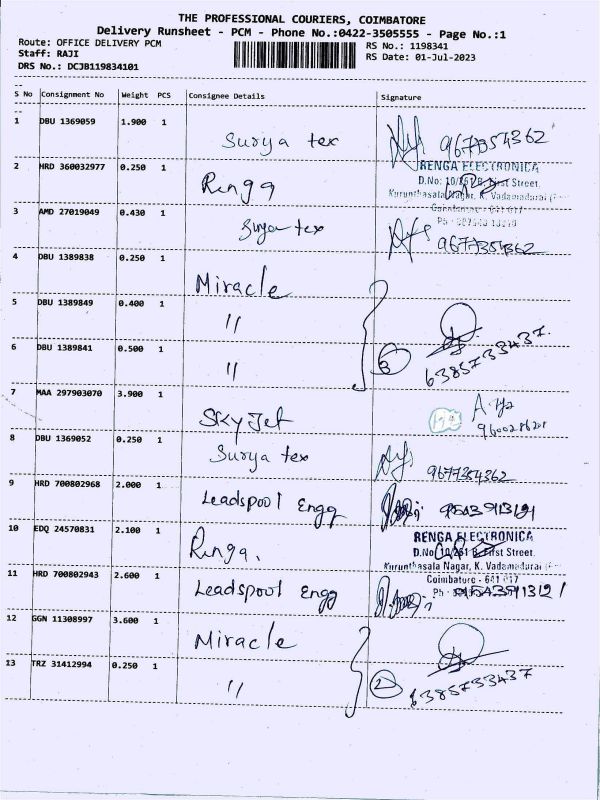 THE PROFESSIONAL COURIERS, COIMBATORE
Delivery Runsheet - PCM - Phone No.:0422-3505555 - Page No.:1
Route: OFFICE DELIVERY PCM
RS No.: 1198341
Staff: RAJI
RS Date: 01-Jul-2023
DRS No.: DCJB119834101
S No Consignment No Weight PCS Consignee Details Signature
1 DBU 1369059 1.900 1
Surya tex 9677354362
2 HRD 360032977 0.250 1
RENGA ELECTRONICA
Renga D.No: 10/261 B, First Street,
Kurunthasala Nagar, K. Vadamadurai
3 AMD 27019049 0.430 1
Surya tex 9677354362
4 DBU 1389838 0.250 1
Miracle
5 DBU 1389849 0.400 1
〃
6 DBU 1389841 0.500 1
〃 3 6385733437
7 MAA 297903070 3.900 1
Skyjet
8 DBU 1369052 0.250 1
Surya tex 9677354362
9 HRD 700802968 2.000 1
Leadspool Engg
10 EDQ 24570831 2.100 1
RENGA ELECTRONICA
Renga. D.No: 10/261 B, First Street,
Kurunthasala Nagar, K. Vadamadurai
11 HRD 700802943 2.600 1
Coimbatore - 641 017
Leadspool Engg
12 GGN 11308997 3.600 1
Miracle
13 TRZ 31412994 0.250 1
〃 2 6385733437